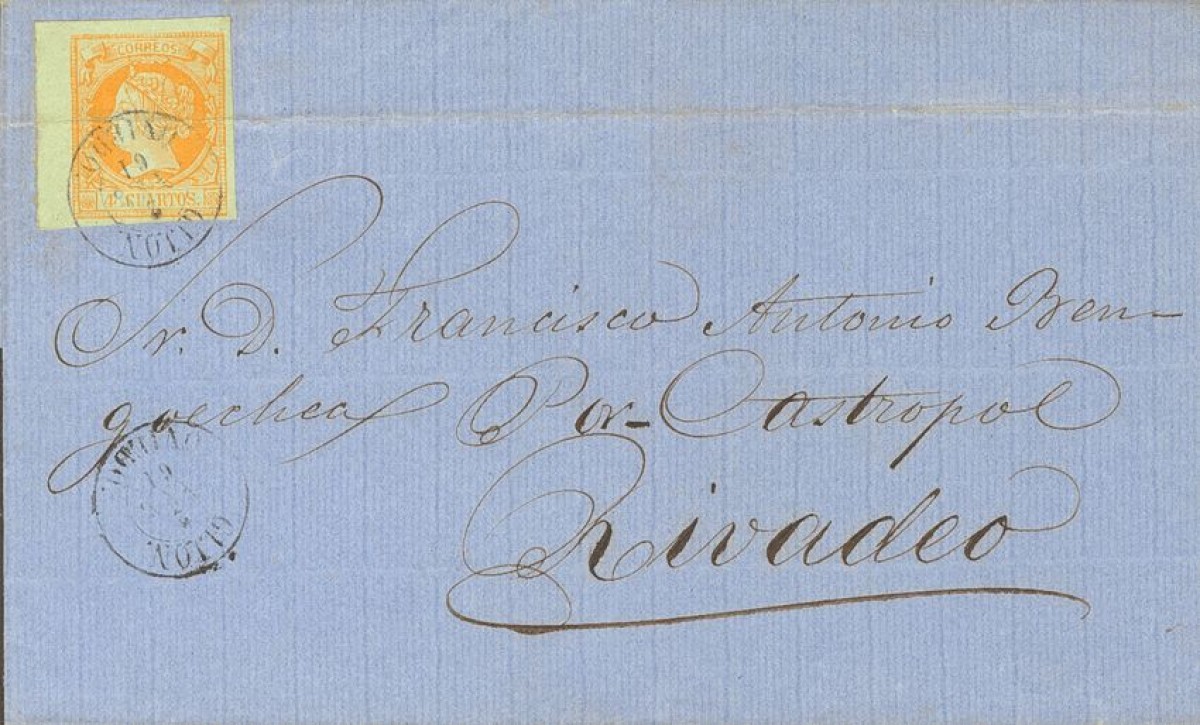 CORREOS
4 CUARTOS.
19
GIJON
Sr. D. Francisco Antonio Ben-
goechea Por- Castropol
Rivadeo
19
GIJON